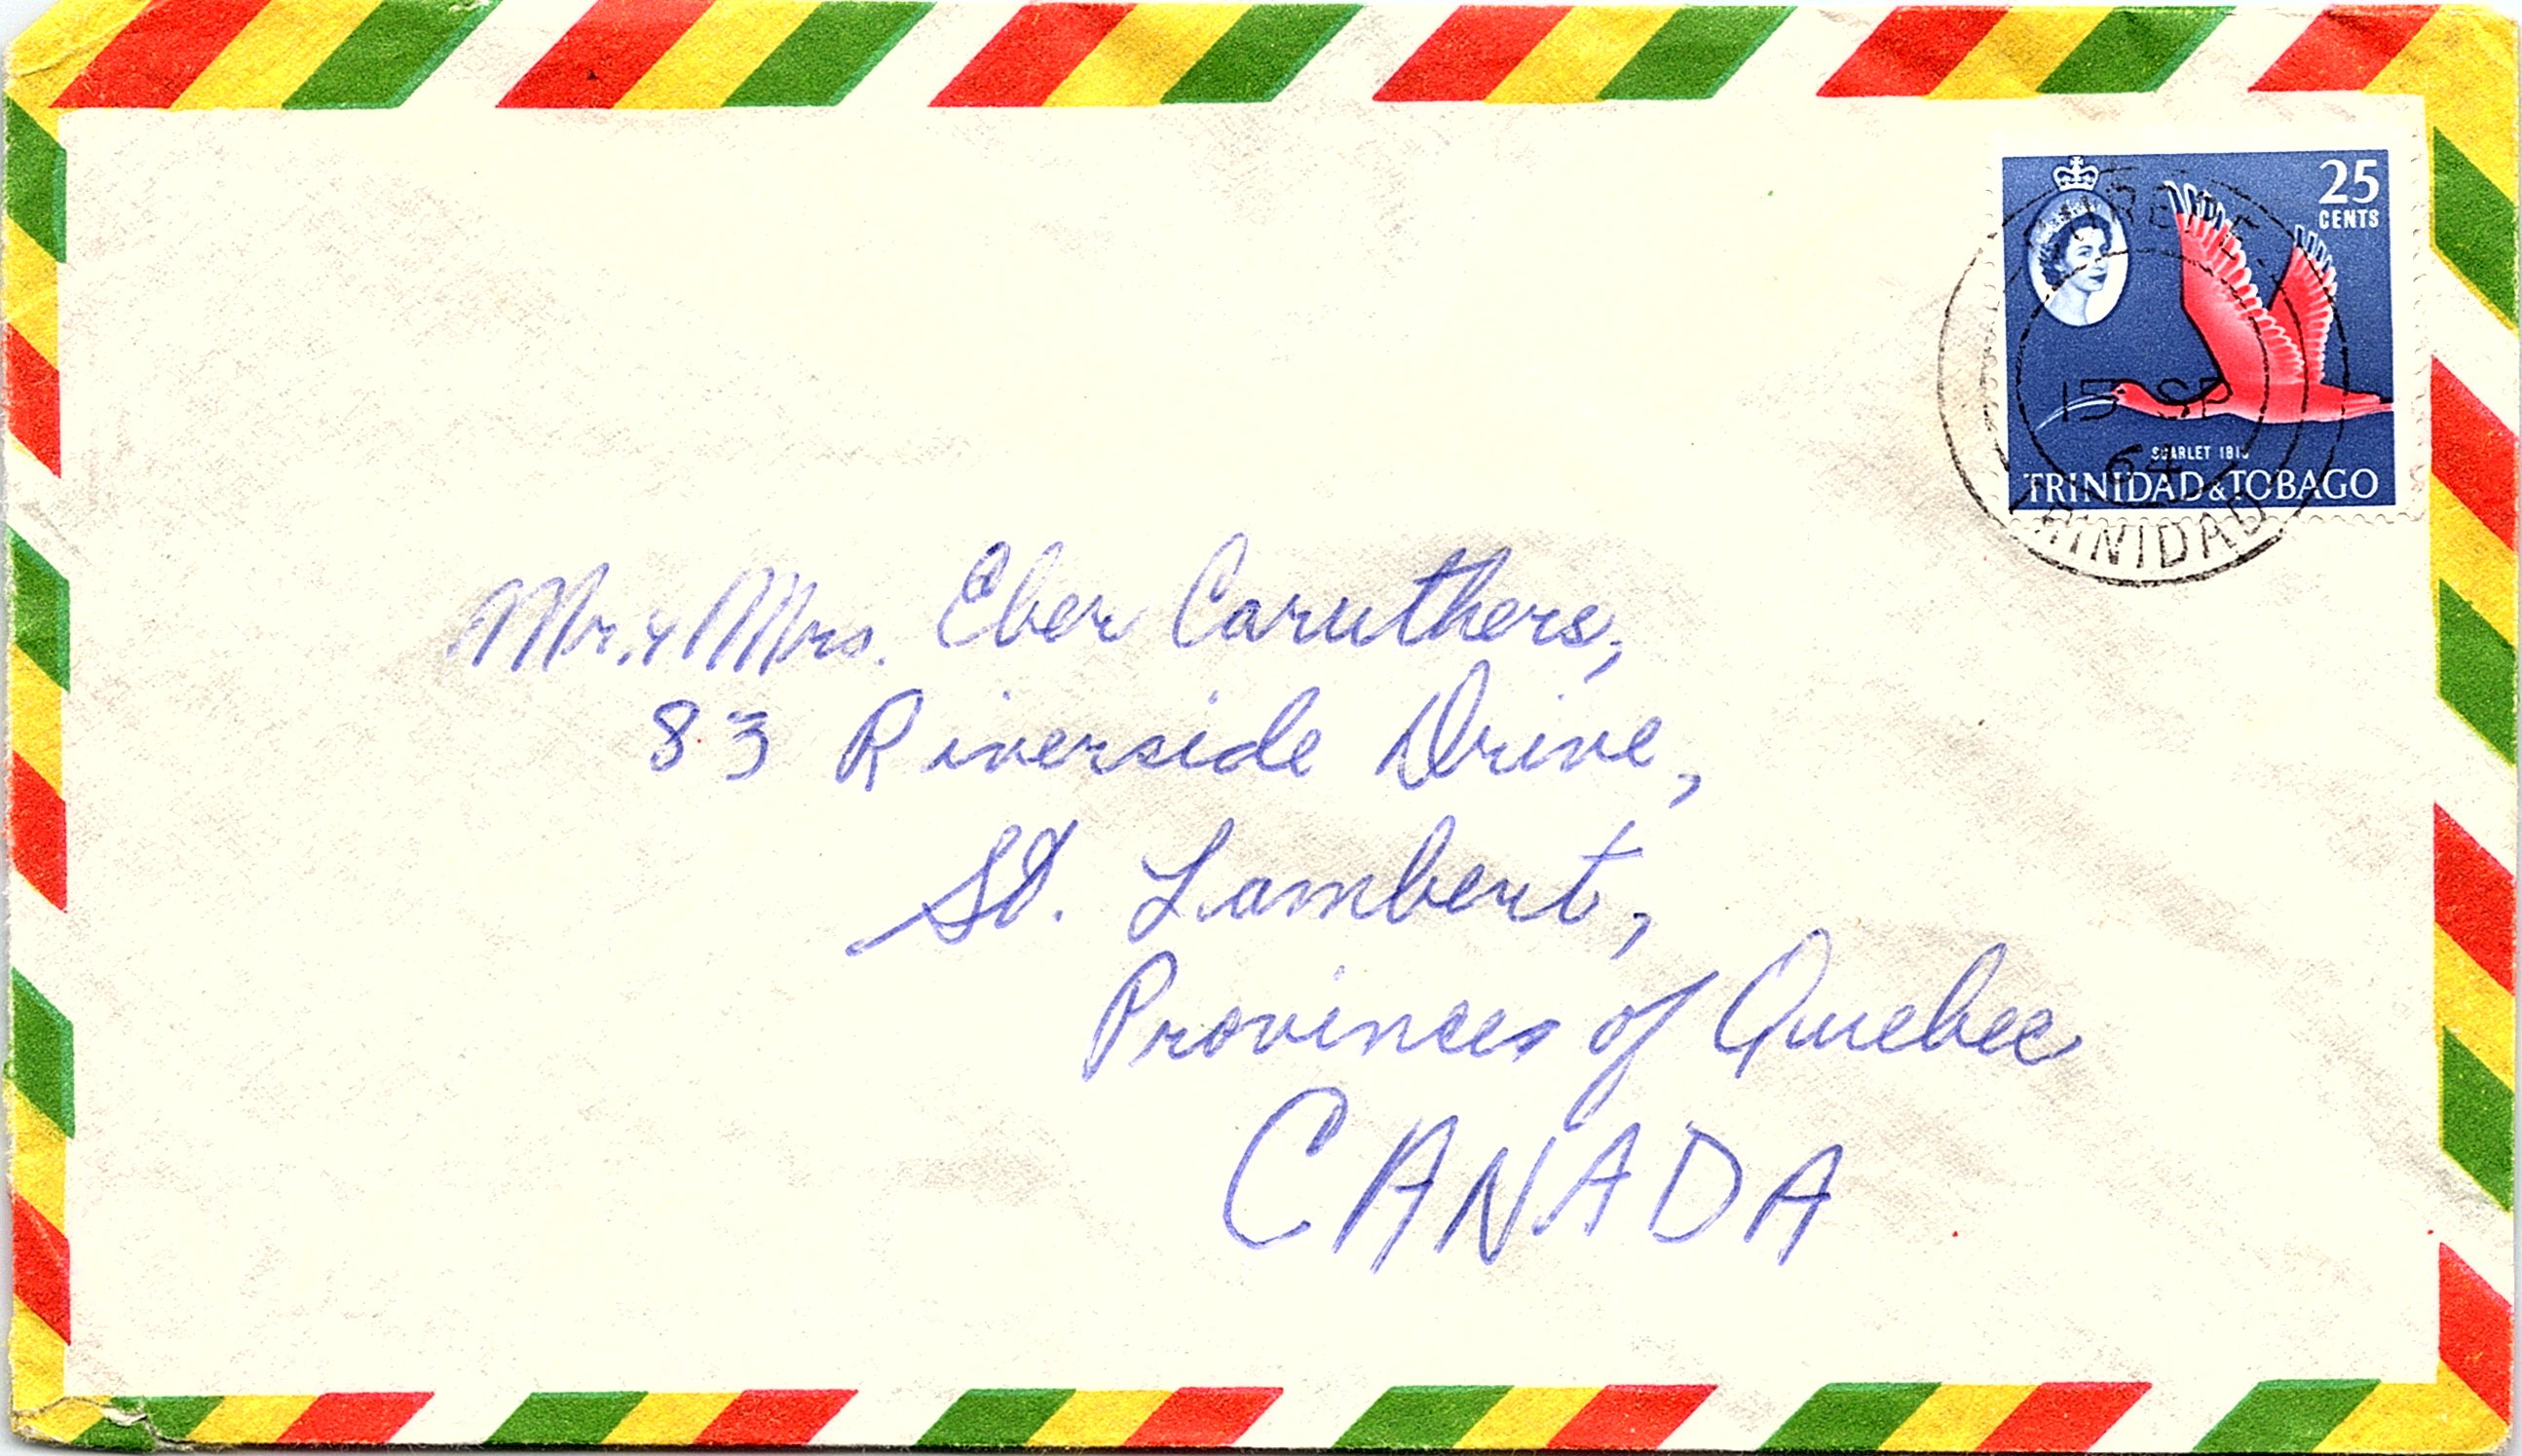 25
CENTS
15 SP
64
SCARLET IBIS
TRINIDAD & TOBAGO
TRINIDAD
Mr. & Mrs. Eber Caruthers,
83 Riverside Drive,
St. Lambert,
Provinces of Quebec
CANADA